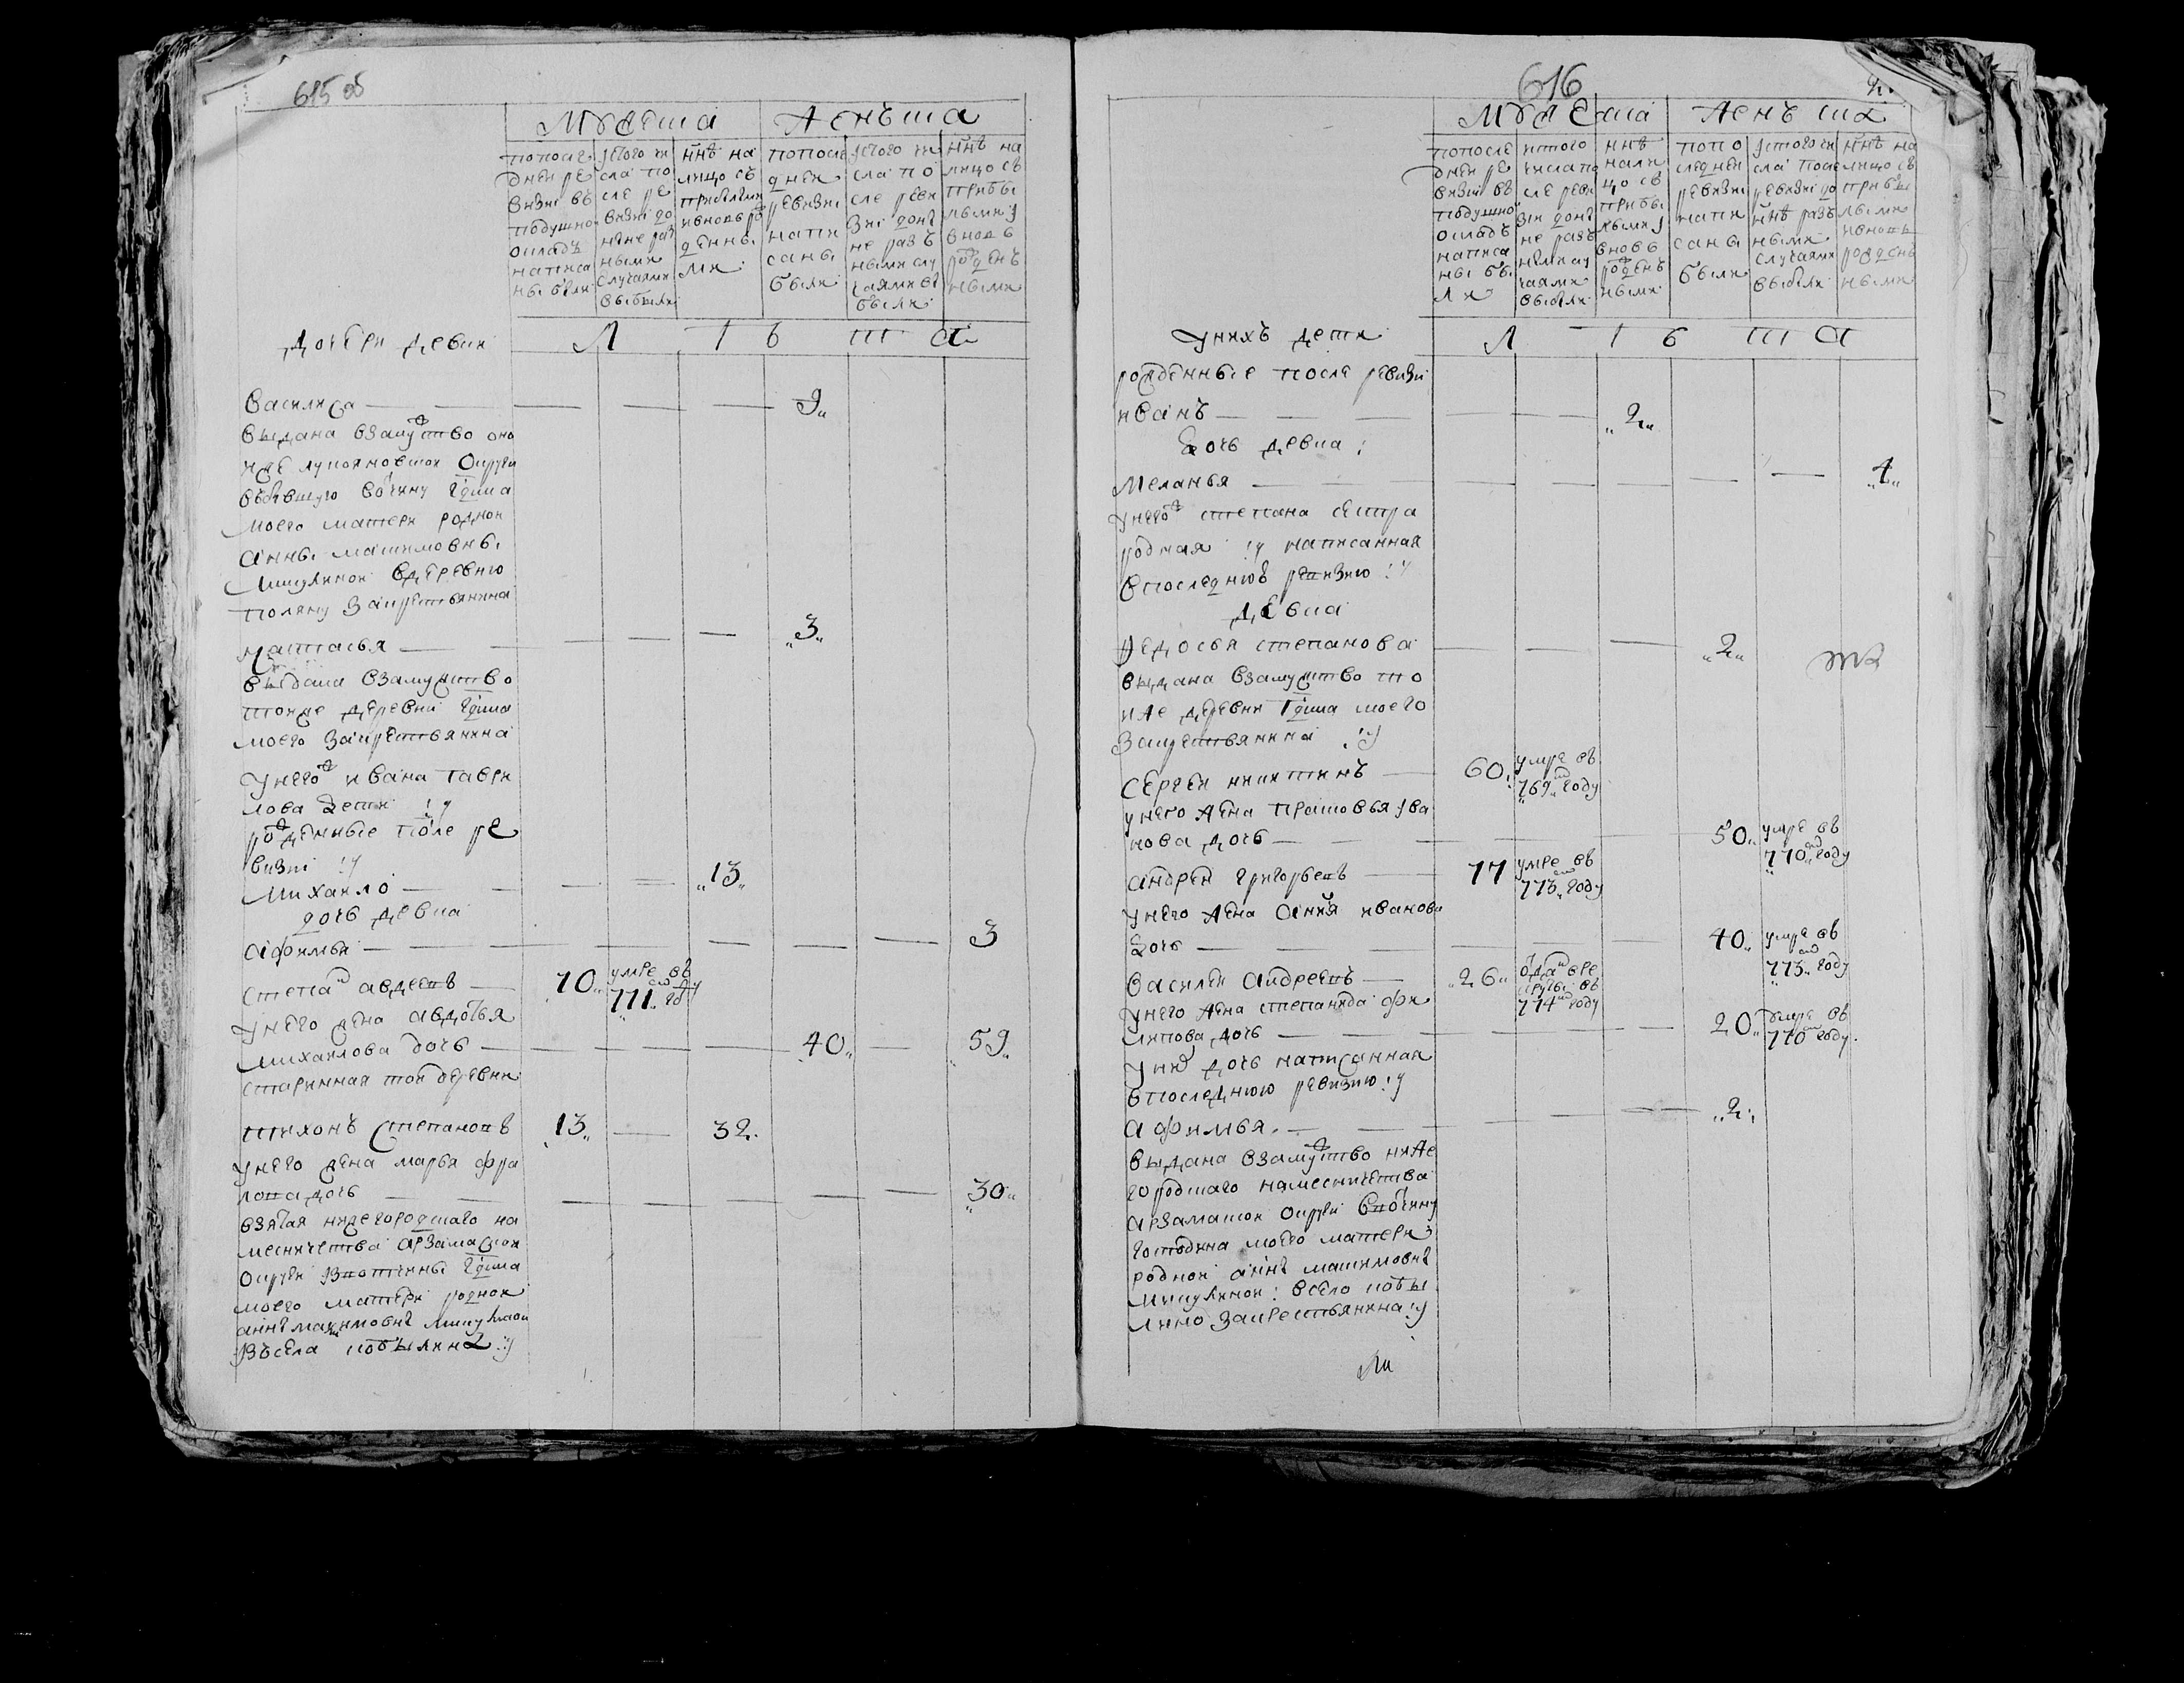 615 об
Мужеска Женъска
попосле
дней ре
визиі въ
подушно
окладъ
написа
ны были
изтого чи
сла по
сле ре
визиі до
ныне раз
ными
случаями
выбыли
ннѣ на
лицо съ
прибылыми
ивновь ро
жденны
ми
попосле
дней
ревизиі
напи
саны
были
изтого чи
сла по
сле реви
зиі донѣ
не разъ
ными слу
чаями вы
были
ннѣ на
лицо съ
прибы
лыми и
вновь
рожденъ
ными
Л Ѣ Т А
дочери девки
василиса 9
выдана взамужство оно
иже лукояновской округи
въбывшую вочину гдина
моего матери родной
анны макимовны
микулиной вдеревню
поляну закрестьянина
настасья 3
выдана взамужство
тоиже деревни гдина
моего закрестьянина
унего ж ивана гаври
лова дети
рожденные после ре
визиі
михаило 13
дочь девка
афимья 3
степан авдеевъ 70 умре въ
771 м году
унего жена авдотья
михаилова дочь 40 59
старинная той деревни
тихонъ степановъ 13 32
унего жена марья фра
лова дочь 30
взятая нижегородскаго на
месничества арзамаской
округи вотчины гдина
моего матери родной
аннѣ макимовнѣ микулиной
Въсела кобылина
616
Мужеска Женъска
попосле
дней ре
визиі въ
подушно
окладъ
написа
ны бы
ли
изтого
числа по
сле реви
зии донѣ
не разъ
ными слу
чаями
выбыли
ннѣ
нали
цо съ
прибы
лыми и
вновь
рожденъ
ными
попо
следней
ревизиі
напи
саны
были
изтого чи
сла после
ревизиі до
ннѣ разъ
ными
случаями
выбыли
ннѣ на
лицо съ
прибы
лыми
ивновь
рожденъ
ными
Л Ѣ Т А
унихъ дети
рожденные после ревизиі
иванъ 2
дочь девка
меланья 4
унего ж степана сестра
родная написанная
впоследнюю ревизию
девка
федосья степанова 2
выдана взамужство то
иже деревни гдина моего
закрестьянина
сергеи никитинъ 60 умре въ
769 м году
унего жена прасковья ива
нова дочь 50 умре въ
770 м году
андрей григорьевъ 77 умре въ
773 м году
унего жена анна иванова
дочь 40 умре въ
773 м году
василеи андреевъ 26 одан вре
круты въ
774 м году
унего жена степанида фи
липова дочь 20 умре въ
770 м году
уних дочь написанная
впоследнюю ревизию
афимья 2
выдана взамужство ниже
городскаго намесничества
арзамаской округи вводчину
господина моего матери
родной аннѣ макимовнѣ
микулиной всело кобы
лино закрестьянина